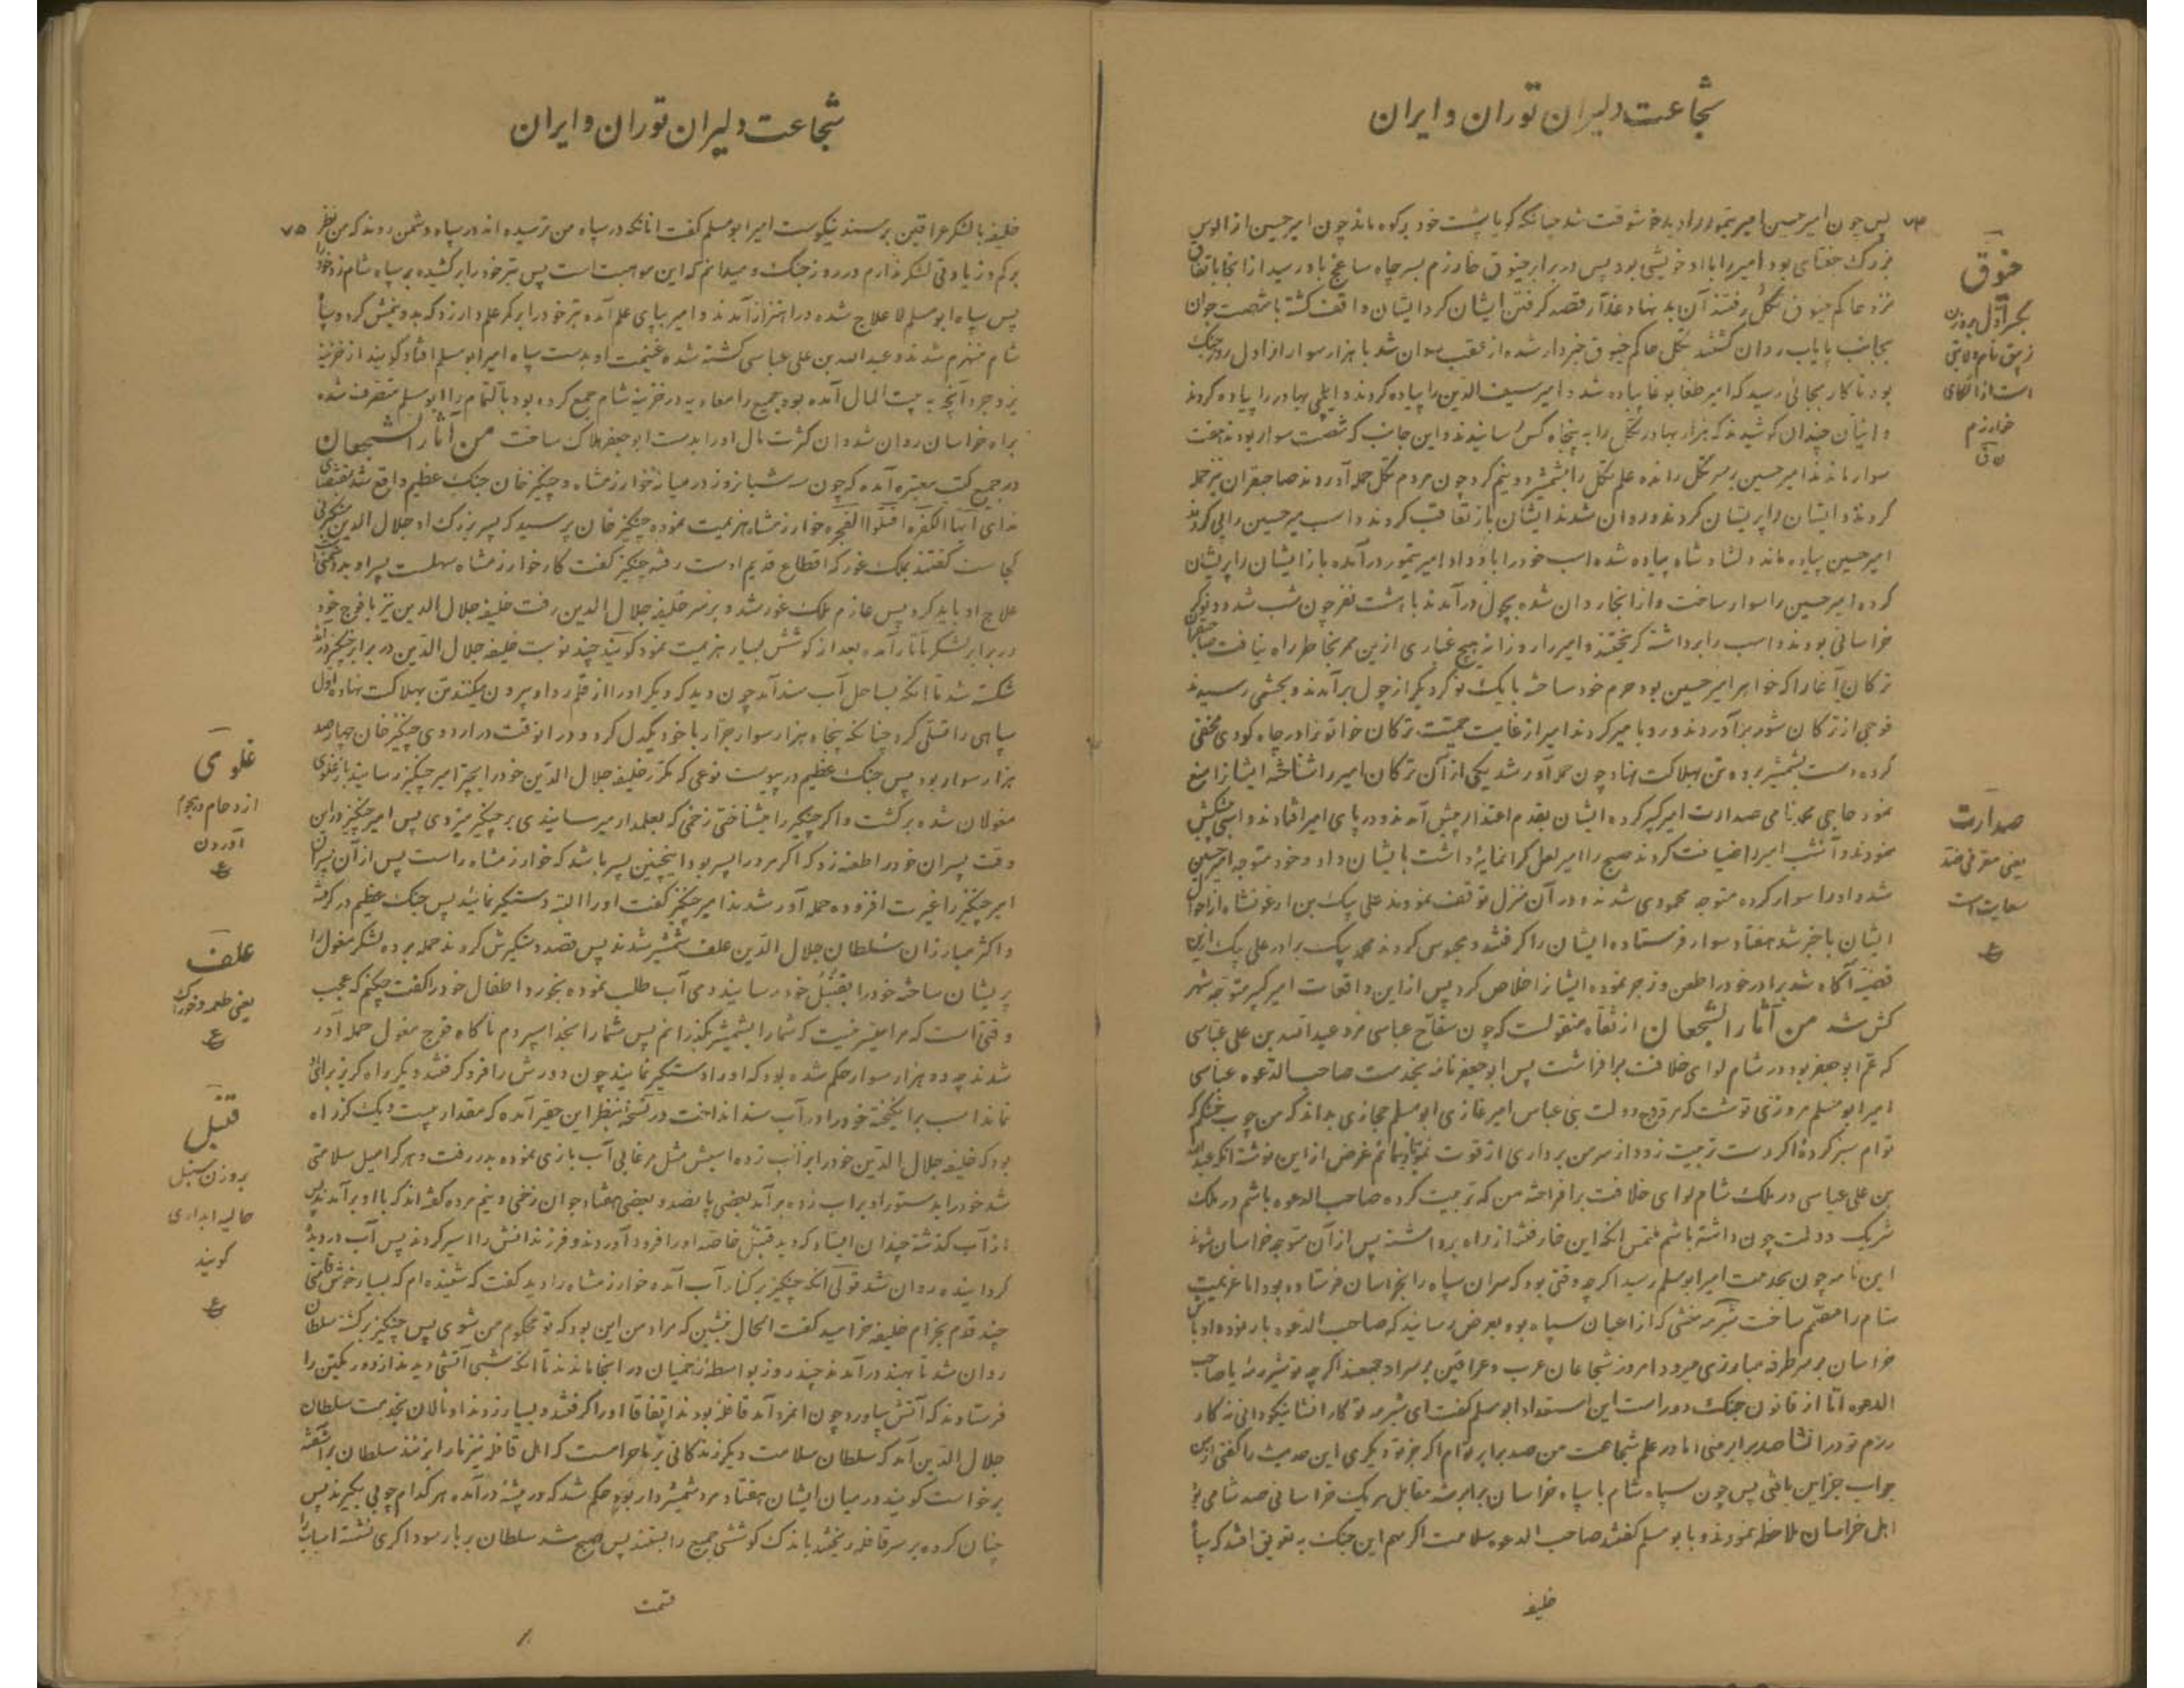 شجاعت دلیران توران و ایران
۷۴
پس چون امیر حسین امیر تیمور را دید خوشوقت شد چنانکه گویا پشت خود بر کوه ماند چون امیر حسین از الوس
بزرگ جغتای بود امیر را با او خویشی بود پس در برابر جیوق خوارزم بسر چاه ساغج باو رسید از آنجا باتفاق
نزد حاکم جیوق تکل رفتند آن بد نهاد غدار قصد گرفتن ایشان کرد ایشان واقف گشته با شصت جوان
بجانب پایاب روان گشتند تکل حاکم جیوق خبردار شده از عقب روان شد با هزار سوار از اول روز جنگ
بود تا کار بجائی رسید که امیر طغا بوغا پیاده شد و امیر سیف الدین را پیاده کردند و ایلچی بهادر را پیاده کردند
و ایشان چندان کوشیدند که هزار بهادر تکل را به پنجاه کس رسانیدند و این جانب که شصت سوار بودند هفت
سوار ماندند امیر حسین بر سر تکل رانده علم تکل را بشمشیر دو نیم کرد چون مردم تکل حمله آوردند صاحبقران نیز حمله
کردند و ایشان را پریشان کردند و روان شدند ایشان باز تعاقب کردند و اسب میر حسین را پی کردند
امیر حسین پیاده ماند و لشاد شاه پیاده شده اسب خود را باو داد و امیر تیمور در آمده باز ایشان را پریشان
کرده امیر حسین را سوار ساخت و از آنجا روان شده بچول در آمدند با هشت نفر چون شب شد دو نوکر
خراسانی بودند و اسب را برداشته گریختند و امیر را روزانه هیچ غباری ازین ممر بخاطر راه نیافت
ترکان آغا را که خواهر امیر حسین بود حرم خود ساخته با یک نوکر دیگر از چول برآمدند و بحشمی رسیدند
فوجی از ترکان شور برآوردند و رو بامیر کردند امیر از غایت حمیت ترکان خاتونرا در چاه کودی مخفی
کرده دست بشمشیر برده تن بهلاکت نهاد چون حمله آور شد یکی از آن ترکان امیر را شناخته ایشانرا منع
نمود حاجی محمد نامی صدارت امیر کبیر کرده ایشان بقدم اعتذار پیش آمدند و در پای امیر افتادند و اسبی پیشکش
نمودند و آن شب امیر را ضیافت کردند صبح را امیر لعل گرانمایه داشت بایشان داد و خود متوجه امیر حسین
شد و او را سوار کرده متوجه محمودی شدند و در آن منزل توقف نمودند علی بیک بن ارغونشاه از احوال
ایشان با خبر شد هفتاد سوار فرستاده ایشان را گرفتند و محبوس کردند محمد بیک برادر علی بیک ازین
قضیه آگاه شد برادر خود را طعن و زجر نموده ایشانرا خلاص کرد پس از این واقعات امیر کبیر متوجه شهر
کش شد من آثار الشجعان از ثقاه منقولست که چون سفاح عباسی مرد عبدالله بن علی عباسی
که عم ابو جعفر بود در شام لوای خلافت برافراشت پس ابو جعفر نامه بخدمت صاحب الدعوه عباسی
امیر ابو مسلم مروزی نوشت که مروج دولت بنی عباس امیر غازی ابو مسلم حجازی بداند که من چوب خشکم که
توام سبز کرده اگر دست تربیت زود از سر من برداری از قوت نمو باز مانم غرض از این نوشته آنکه عبدالله
بن علی عباسی در ملک شام لوای خلافت برافراخته من که تربیت کرده صاحب الدعوه باشم در ملک
شریک دولت چون داشته باشم ملتمس آنکه این خار فتنه از راه برداشته پس از آن متوجه خراسان شوند
این نامه چون بخدمت امیر ابو مسلم رسید اگرچه وقتی بود که سران سپاه را بخراسان فرستاده بود اما عزیمت
شام را مصمم ساخت شبرمه منشی که از اعیان سپاه بود بعرض رسانید که صاحب الدعوه بار نموده او با
خراسان بر سر طرفه مبارزی میرود امروز شجاعان عرب و عراقین بر سر او جمعند اگرچه تو شیر مردی یا صاحب
الدعوه اما از قانون جنگ دور است این استعداد ابو مسلم گفت ای شبرمه تو کار انشا نیکو دانی نه کار
رزم تو در انشا صد برابر منی اما در علم شجاعت من صد برابر توام اگر جز تو دیگری این حدیث را گفتی
جواب جز این یافتی پس چون سپاه شام با سپاه خراسان برابر شد مقابل هر یک خراسانی صد شامی بود
اهل خراسان ملاحظه نمودند و با بو مسلم گفتند صاحب الدعوه سلامت اگر مهم این جنگ به تعویق افتد که سپاه
خلیفه
جیوق
بکسر اول بروزن
زیبق نام ولایتی
است از اتکای
خوارزم
ن ق
صدارت
یعنی معرفی ضد
سعایت است
ع
شجاعت دلیران توران و ایران
۷۵
خلیفه با لشکر عراقین برسند نیکوست امیر ابو مسلم گفت آنانکه در سپاه من ترسیده اند در سپاه دشمن روند که من نظر
بر کم و زیادتی لشکر ندارم در روز جنگ و میدانم که این موهبت است پس تبر خود را بر کشیده بر سپاه شام زد
پس سپاه ابو مسلم لا علاج شده در اهتزاز آمدند و امیر بپای علم آمده تبر خود را بر کمر علم دار زد که بدو نیمش کرد و سپاه
شام منهزم شدند و عبدالله بن علی عباسی کشته شده غنیمت او بدست سپاه امیر ابو مسلم افتاد گویند از خزینه
یزدجرد آنچه به بیت المال آمده بود جمیع را معاویه در خزینه شام جمع کرده بود بالتمام را ابو مسلم متصرف شده
براه خراسان روان شد و آن کثرت مال او را بدست ابو جعفر هلاک ساخت من آثار الشجعان
در جمیع کتب معتبره آمده که چون سه شبانروز در میان خوارزمشاه و چنگیز خان جنگ عظیم واقع شد بمقتضای
ندای ایها الکفره اقتلوا الفجره خوارزمشاه هزیمت نموده چنگیز خان پرسید که پسر بزرگ او جلال الدین
کجاست گفتند بملک غور که اقطاع قدیم اوست رفته چنگیز گفت کار خوارزمشاه سهلست پسر او بد دشمنی
علاج او باید کرد پس عازم ملک غور شد و بر سر خلیفه جلال الدین رفت خلیفه جلال الدین نیز با فوج خود
در برابر لشکر تاتار آمده بعد از کوشش بسیار هزیمت نمود گویند چند نوبت خلیفه جلال الدین در برابر چنگیز
شکسته شد تا آنکه بساحل آب سند آمد چون دید که دیگر او را از قلمرو او بیرون میکنند تن بهلاکت نهاده اول
سپاهی را قتلی کرد چنانکه پنجاه هزار سوار جرار با خود یکدل کرد و در آنوقت در اردوی چنگیز خان چهار صد
هزار سوار بود پس جنگ عظیم در پیوست نوعی که مکرر خلیفه جلال الدین خود را بچتر امیر چنگیز رسانید باز غلوی
مغولان شده برگشت و اگر چنگیز را میشناختی زخمی که بعلمدار میرسانیدی بر چنگیز میزدی پس امیر چنگیز در این
وقت پسران خود را طعنه زد که اگر مرد را پسر بود اینچنین پسر باشد که خوارزمشاه راست پس از آن پسران
امیر چنگیز را غیرت افزوده حمله آور شدند امیر چنگیز گفت او را البته دستگیر نمائید پس جنگ عظیم در گرفته
و اکثر مبارزان سلطان جلال الدین علف شمشیر شدند پس قصد دستگیرش کردند حمله برده لشکر مغول را
پریشان ساخته خود را بقتبل خود رسانید و می آب طلب نموده بخورد و اطفال خود را گفت چکنم که عجب
وقتی است که مرا غیر نیست که شما را بشمشیر بگذرانم پس شما را بخدا سپردم ناگاه فوج مغول حمله آور
شدند چه دو هزار سوار حکم شده بود که او را دستگیر نمایند چون دورش را فرو گرفتند دیگر راه گریز برای
نماند اسب برانگیخته خود را در آب سند انداخت در نسخه بنظر این حقیر آمده که مقدار بیست و یک گز راه
بود که خلیفه جلال الدین خود را بر آب زده اسبش مثل مرغابی آب بازی نموده بدر رفت و هر کرا میل سلامتی
شد خود را بدستور او بر آب زده برآمد بعضی پانصد و بعضی هفتاد جوان زخمی و نیم مرده گفته اند که با او برآمدند پس
از آب گذشته چندان ایستاد که دید قتبل خاصه او را فرود آوردند و فرزندانش را اسیر کردند پس آب در دیده
گردانیده روان شد قولی آنکه چنگیز بر کنار آب آمده خوارزمشاه را دید گفت که شنیده ام که بسیار خوش قامتی
چند قدم بخرام خلیفه خرامید گفت الحال بنشین که مراد من این بود که تو محکوم من شوی پس چنگیز برگشته سلطان
روان شد تا بهند در آمدند چند روز بواسطه زخمیان در آنجا ماندند تا آنکه شبی آتشی دیدند از دور یکتن را
فرستادند که آتش بیاورد چون آنمرد آمد قافله بودند اتفاقا او را گرفتند و بسیار زدند او نالان بخدمت سلطان
جلال الدین آمد که سلطان سلامت دیگر زندگانی بر ما حرامست که اهل قافله نیز ما را بزنند سلطان برآشفته
برخواست گویند در میان ایشان هفتاد مرد شمشیردار بود حکم شد که در بیشه در آمده هر کدام چوبی بگیرند پس
چنان کرده بر سر قافله ریختند باندک کوششی جمیع را بستند پس صبح شد سلطان بر بار سوداگری نشسته اسباب را
قسمت
غلوی
ازدحام و هجوم
آوردن
ع
علف
یعنی طعمه و خوراک
ع
قتبل
بروزن سنبل
حالیه انباری
گویند
ع